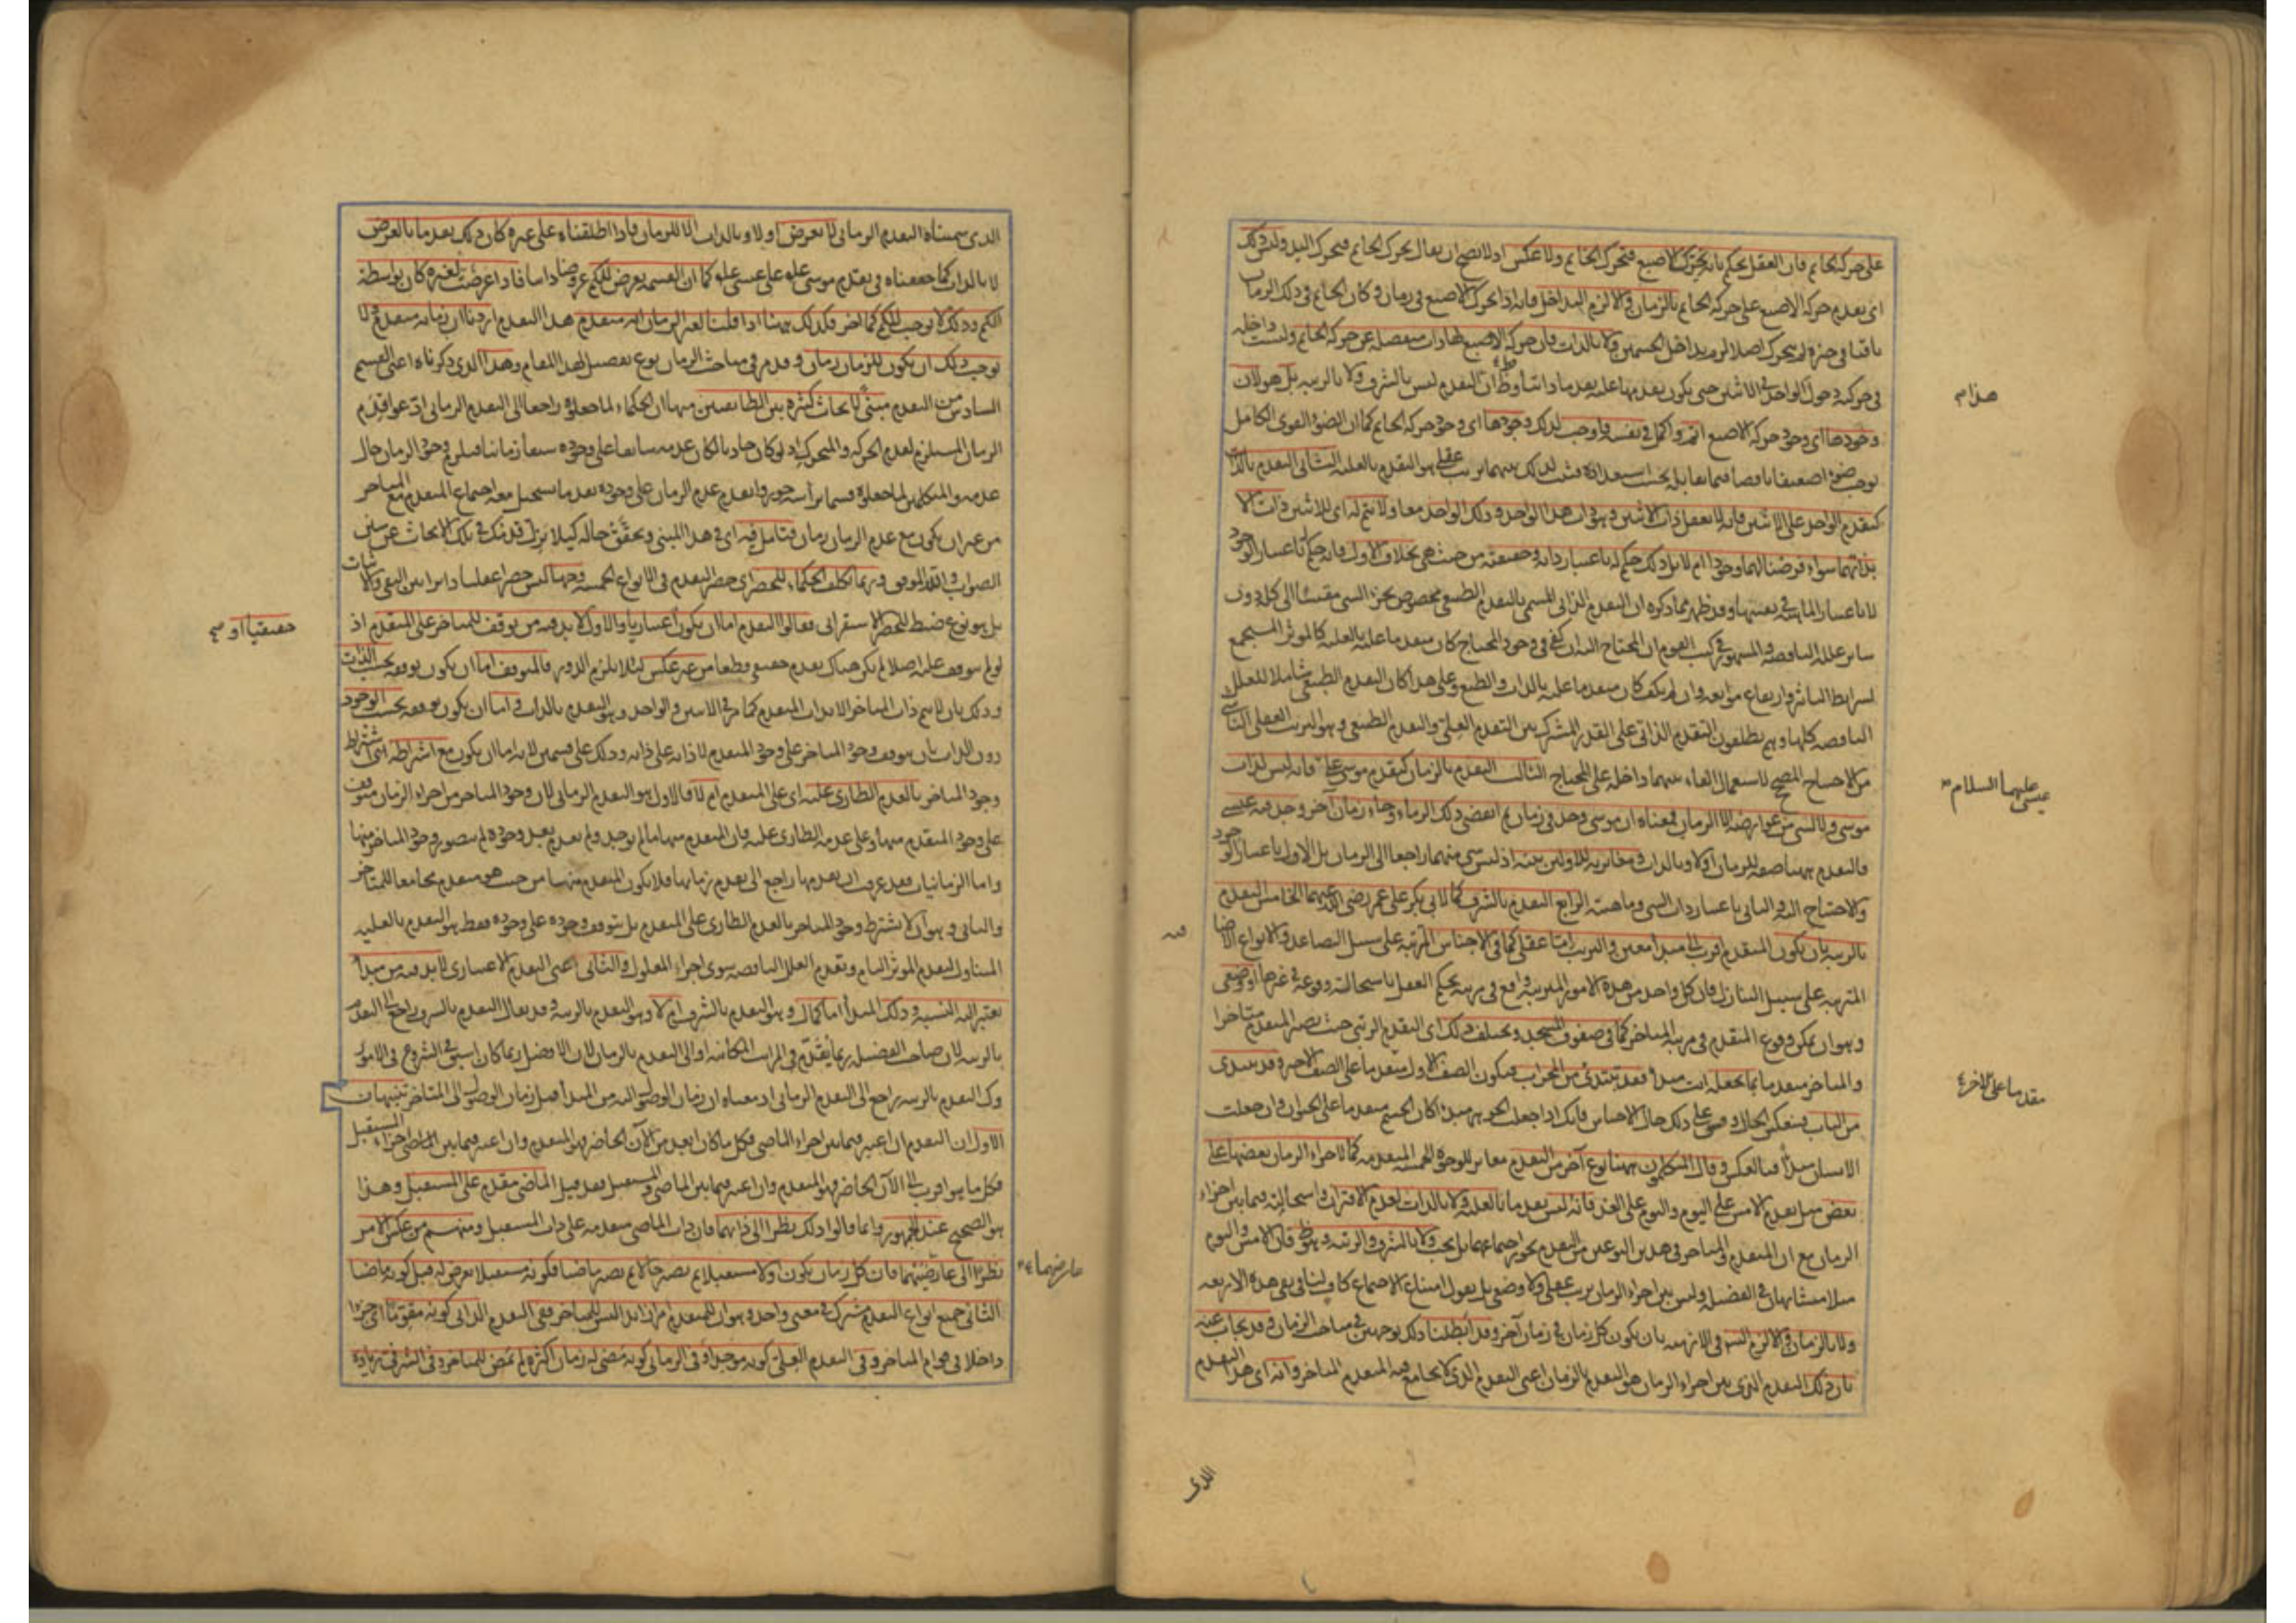 على حركة الخاتم فان العقل يحكم بانه تحرك الاصبع فتحرك الخاتم ولا عكس اذ لا يصح ان يقال تحرك الخاتم فتحرك اليد وليس ذلك
اى تقدم حركة الاصبع على حركة الخاتم بالزمان والا لزم التداخل فانه اذا تحرك الاصبع فى زمان وكان الخاتم فى ذلك الزمان
باقيا فى حيزه لم يتحرك اصلا لزم تداخل الجسمين ولا بالذات فان حركة الاصبع لها ذات منفصلة عن حركة الخاتم وليست داخلة
فى حركته دخول الواحد فى الاثنين حتى يكون تقدمها عليه تقدما ذاتيا وظ ان التقدم ليس بالشرف ولا بالرتبة بل هو لان
وجودها اى وجود حركة الاصبع اتم واكمل فى نفسه فاوجب لذلك وجودها اى وجود حركة الخاتم كما ان الضوء القوى الكامل
يوجب ضوءا ضعيفا ناقصا فيما يقابله بحسب استعداده فثبت لذلك بينهما ترتيب عقلى هو التقدم بالعلية الثانى التقدم بالذات
كتقدم الواحد على الاثنين فانه لا يعقل ذات الاثنين وهو ذات هذا الواحد وذلك الواحد معا ولا يتم له اى للاثنين ذات الا
بذاتهما سواء فرضنا لهما وجودا ام لا بل ذلك حكم له باعتبار ذاته وحقيقته من حيث هى بخلاف الاول فانه حكم باعتبار الوجود
لا باعتبار الماهية فى نفسها وقد ظهر مما ذكره ان التقدم الذاتى المسمى بالتقدم الطبعى مخصوص بجزء الشىء مقيسا الى كله دون
سائر علله الناقصة والمشهور فى كتب القوم ان المحتاج اليه ان كفى فى وجود المحتاج كان متقدما عليه بالعلية كالمؤثر المستجمع
لشرائط التاثير وارتفاع موانعه وان لم يكف كان متقدما عليه بالذات والطبع وعلى هذا كان التقدم الطبعى شاملا للعلل
الناقصة كلها وهم يطلقون التقدم الذاتى على القدر المشترك بين التقدم العلى والتقدم الطبعى وهو الترتيب العقلى الناشى
من الاحتياج المصحح لاستعمال الفاء بينهما داخلة على المحتاج الثالث التقدم بالزمان كتقدم موسى على فانه ليس لذات
موسى ولا لشىء من عوارضه الا الزمان فمعناه ان موسى وجد فى زمان ثم انقضى ذلك الزمان وجاء زمان آخر وجد فيه عيسى
فالتقدم ههنا صفة للزمان اولا وبالذات ومغايرته للاولين بينة اذ ليس شىء منهما راجعا الى الزمان بل الاول باعتبار الوجود
والاحتياج اليه والثانى باعتبار ذات الشىء وماهيته الرابع التقدم بالشرف كما لابى بكر على عمر رضى الله عنهما الخامس التقدم
بالرتبة بان يكون المتقدم اقرب الى مبدأ معين والترتيب اما عقلى كما فى الاجناس المترتبة على سبيل التصاعد والانواع الاضافية
المترتبة على سبيل التنازل فان كل واحد من هذه الامور المترتبة واقع فى مرتبة يحكم العقل باستحالة وقوعه فى غيرها او وضعى
وهو ان يمكن وقوع المتقدم فى مرتبة المتاخر كما فى صفوف المسجد ويختلف ذلك اى التقدم الرتبى حيث يصير المتقدم متاخرا
والمتاخر متقدما بما تجعله انت مبدأ فقد تبتدئ من المحراب فيكون الصف الاول متقدما على الصف الاخير وقد تبتدئ
من الباب فينعكس الحال وقس على ذلك حال الاجناس فانك اذا جعلت الجوهر مبدأ كان الجسم متقدما على الحيوان وان جعلت
الانسان مبدأ فبالعكس وقال المتكلمون ههنا نوع آخر من التقدم مغاير للوجوه الخمسة المتقدمة كما لاجزاء الزمان بعضها على
بعض مثل تقدم الامس على اليوم واليوم على الغد فانه ليس تقدما بالعلية ولا بالذات لعدم الاقتران واستحالته فيما بين اجزاء
الزمان مع ان المتقدم والمتاخر فى هذين النوعين من التقدم يجوز اجتماعهما بل يجب ولا بالشرف والرتبة وهو ظ فان الامس واليوم
مثلا متشابهان فى الفضيلة وليس بين اجزاء الزمان ترتيب عقلى ولا وضعى بل نقول امتناع الاجتماع كاف لنا فى نفى هذه الاربعة
ولا بالزمان والا لزم التس فى الازمنة بان يكون كل زمان فى زمان آخر وقد ابطلنا ذلك بوجهين فى مباحث الزمان وقد يجاب عنه
بان ذلك التقدم الذى بين اجزاء الزمان هو التقدم بالزمان اعنى التقدم الذى لا يجامع فيه المتقدم المتاخر وانه اى هذا التقدم
هذا م
عليهما السلام
عيسى
فيه
مقدما على الآخر
الذى
الذى سميناه التقدم الزمانى لا يعرض اولا وبالذات الا للزمان فاذا اطلقناه على غيره كان ذلك تقدما بالعرض
لا بالذات كما حققناه فى تقدم موسى على عيسى كما ان القسمة يعرض للكم عروضا ذاتيا فاذا عرضت لغيره كان بواسطة
الكم وذلك لا يوجب للكم كما آخر فكذلك ههنا اذا قلنا لغير الزمان انه متقدم هذا التقدم اردنا ان زمانه متقدم ولا
يوجب ذلك ان يكون للزمان زمان وقد مر فى مباحث الزمان نوع تفصيل لهذا المقام وهذا الذى ذكرناه اعنى القسم
السادس من التقدم مبنى لابحاث كثيرة بين الطائفتين منها ان الحكماء لما جعلوه راجعا الى التقدم الزمانى ادعوا قدم
الزمان المستلزم لقدم الحركة والمتحرك اذ لو كان حادثا لكان عدمه سابقا على وجوده سبقا زمانيا فيلزم وجود الزمان حال
عدمه والمتكلمين لما جعلوه قسما برأسه جوزوا تقدم عدم الزمان على وجوده تقدما يستحيل معه اجتماع المتقدم مع المتاخر
من غير ان يكون مع عدم الزمان زمان فتامل فيه اى فى هذا المبنى وتحقق حاله كيلا يزل قدمك فى تلك الابحاث عن سنن
الصواب والله الموفق وربما تكلف الحكماء للحصر اى حصر التقدم فى الانواع الخمسة وجها ليس حصرا عقليا دائرا بين النفى والاثبات
بل هو نوع ضبط للحصر الاستقرائى فقالوا التقدم اما ان يكون اعتباريا والاول لا بد فيه من توقف للمتاخر على المتقدم اذ
لو لم يتوقف عليه اصلا لم يكن هناك تقدم حقيقى وقطعا من غير عكس لئلا يلزم الدور فالتوقف اما ان يكون توقفه بحسب الذات
وذلك بان لا يتم ذات المتاخر الا بذات المتقدم كما مر فى الاثنين والواحد وهو التقدم بالذات واما ان يكون توقفه بحسب الوجود
دون الذات بان يتوقف وجود المتاخر على وجود المتقدم لا ذاته على ذاته وذلك على قسمين لانه اما ان يكون مع اشتراطه اى اشتراط
وجود المتاخر بالعدم الطارى عليه اى على المتقدم ام لا فالاول هو التقدم الزمانى لان وجود المتاخر من اجزاء الزمان متوقف
على وجود المتقدم منها وعلى عدمه الطارى عليه فان المتقدم منها ما لم يوجد ولم يعدم بعد وجوده لم يتصور وجود المتاخر منها
واما الزمانيات فقد عرفت ان تقدمها راجع الى تقدم زمانها فلا يكون المتقدم منها من حيث هو متقدم مجامعا للمتاخر
والثانى وهو ان لا يشترط وجود المتاخر بالعدم الطارى على المتقدم بل يتوقف وجوده على وجوده فقط هو التقدم بالعلية
المتناول لتقدم المؤثر التام وتقدم العلل الناقصة سوى اجزاء المعلول والثانى اعنى التقدم الاعتبارى لا بد فيه من مبدأ
تعتبر اليه النسبة وذلك المبدأ اما كمال وهو التقدم بالشرف ام لا وهو التقدم بالرتبة وقد يقال التقدم بالشرف راجع الى التقدم
بالرتبة لان صاحب الفضيلة ربما يقدم فى المراتب المكانية او الى التقدم بالزمان لان الافضل ربما كان اسبق فى الشروع فى الامور
وكذا التقدم بالرتبة راجع الى التقدم الزمانى اذ معناه ان زمان الوصول اليه من المبدأ قبل زمان الوصول الى المتاخر تنبيهان
الاول ان التقدم ان اعتبر فيما بين اجزاء الماضى فكل ما كان ابعد من الآن الحاضر فهو المتقدم وان اعتبر فيما بين اجزاء المستقبل
فكل ما هو اقرب الى الآن الحاضر فهو المتقدم وان اعتبر فيما بين الماضى والمستقبل فقد قيل الماضى مقدم على المستقبل وهذا
هو الصحيح عند الجمهور وانما قالوا ذلك نظرا الى ذاتهما فان ذات الماضى متقدمة على ذات المستقبل ومنهم من عكس الامر
نظرا الى عارضيهما فان كل زمان يكون اولا مستقبلا ثم يصير حالا ثم يصير ماضيا فكونه مستقبلا يعرض له قبل كونه ماضيا
الثانى جميع انواع التقدم مشترك فى معنى واحد وهو ان للمتقدم امرا زائدا ليس للمتاخر ففى التقدم الذاتى كونه مقوما اى جزءا
داخلا فى قوام المتاخر وفى التقدم العلى كونه موجدا وفى الزمانى كونه مضى له زمان اكثر لم يمض للمتاخر وفى الشرفى زيادة
حقيقيا او صح
عارضهما